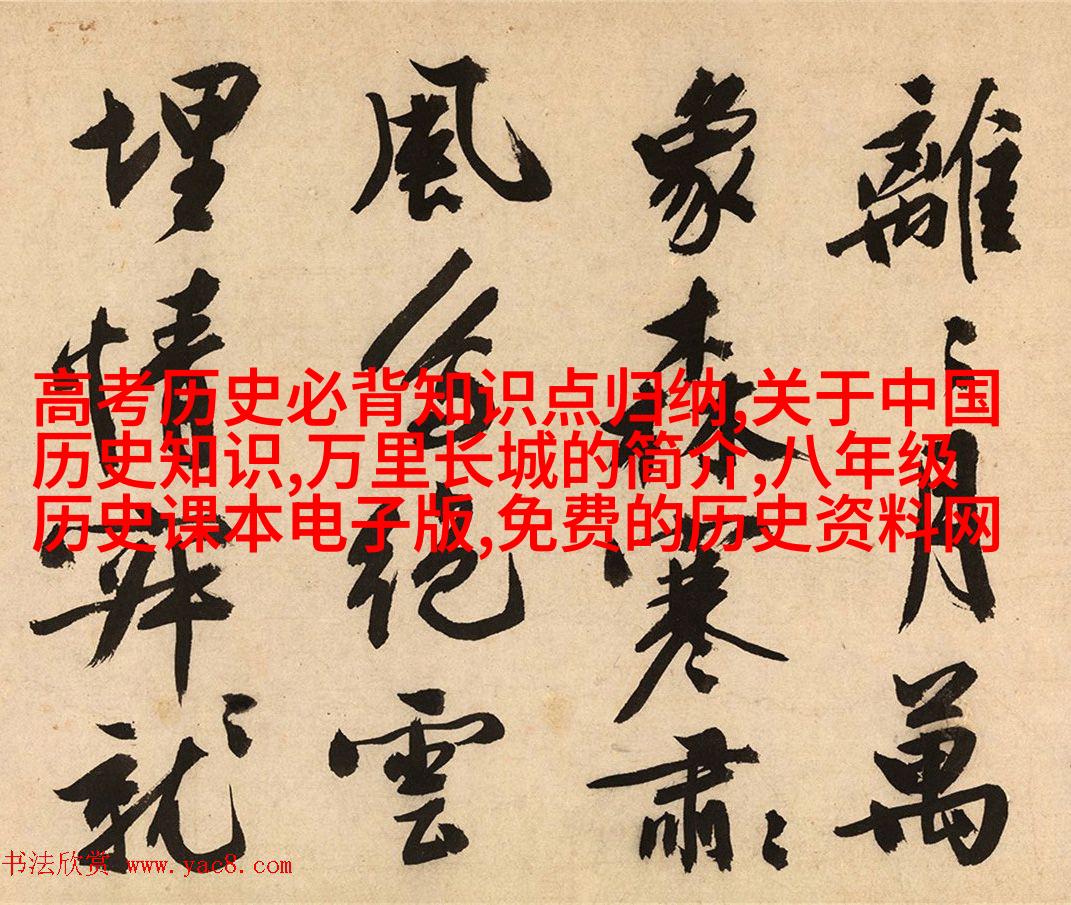 離〻月萬
象森寒肅〻
風色絕雲
埋情就
高考历史必背知识点归纳,关于中国
历史知识,万里长城的简介,八年级
历史课本电子版,免费的历史资料网
书法欣赏 www.yac8.com